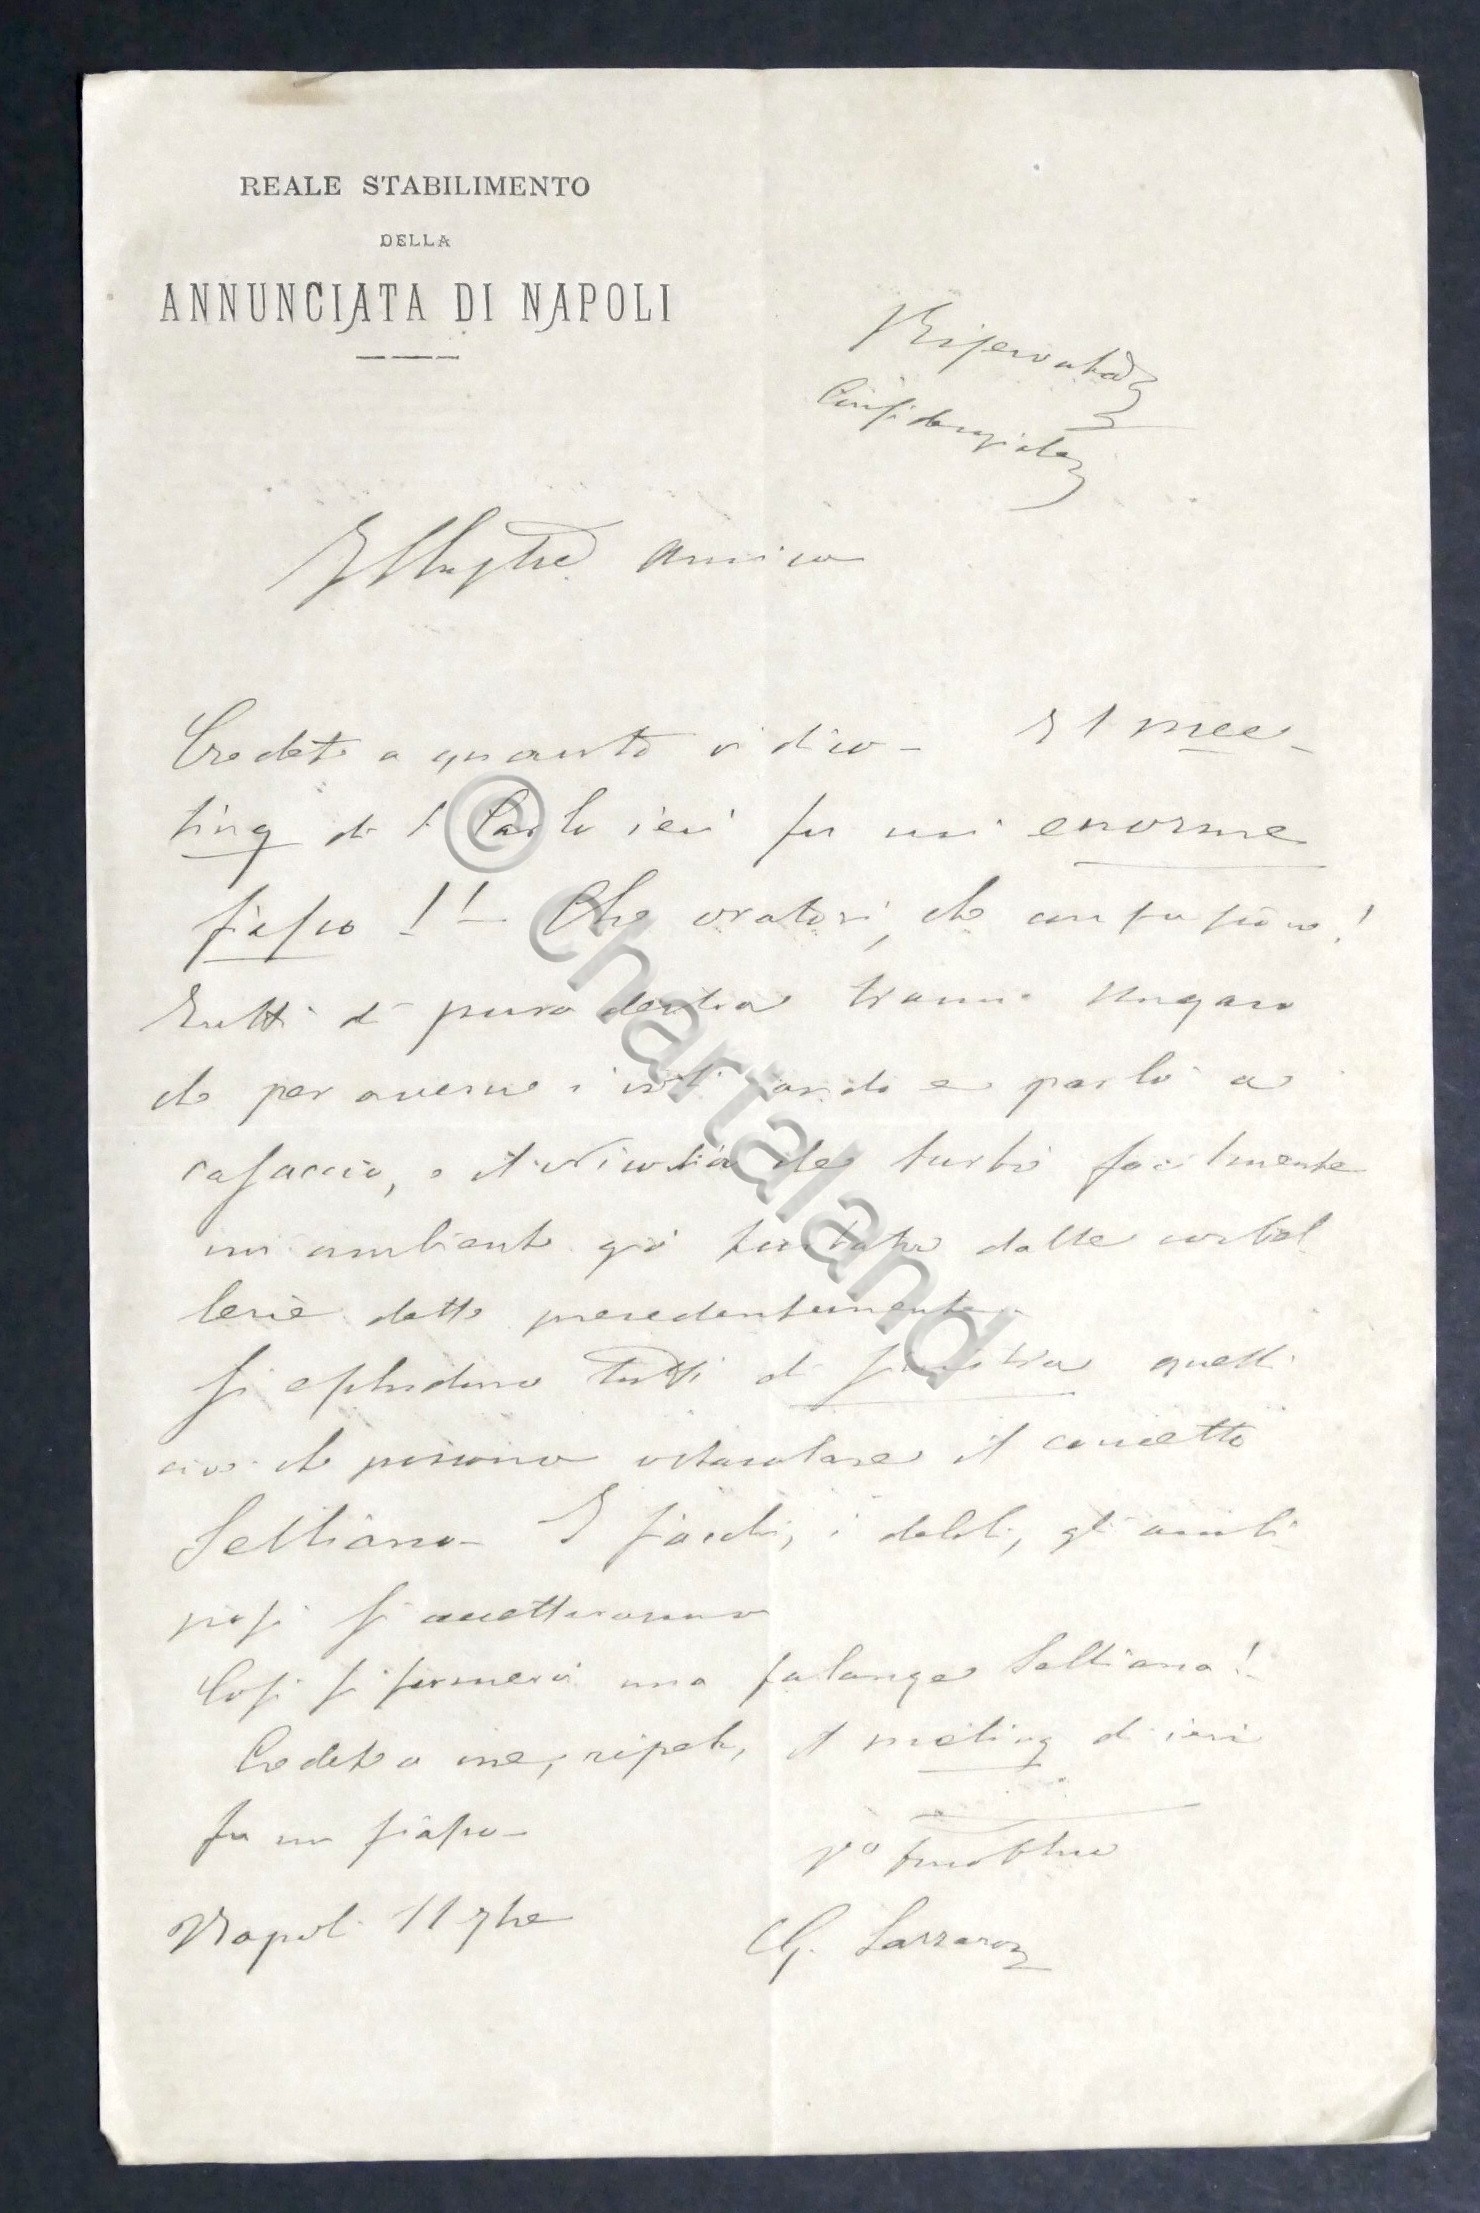 REALE STABILIMENTO
DELLA
ANNUNCIATA DI NAPOLI
Riservata
Confidenziale
Illustre amico
Credete a quanto vi dico - Il mee-
ting di S Carlo ieri fu un enorme
fiasco!! - Che oratori, che confusione!
Tutti di pura destra tranne Ungaro
che per averne i voti andò e parlò a
casaccio, e il Nicotera che turbò facilmente
un ambiente già turbato dalle corbel
lerie dette precedentemente.
Si escludano tutti di sinistra quelli
cioè che possono ostacolare il concetto
Selliano - I fiacchi, i deboli, gli ambi
ziosi si accetteranno
Così si formerà una falange Selliana!
Credete a me, ripeto, il meeting di ieri
fu un fiasco -
Napoli 11 9bre
G. Lazzaro
© chartaland